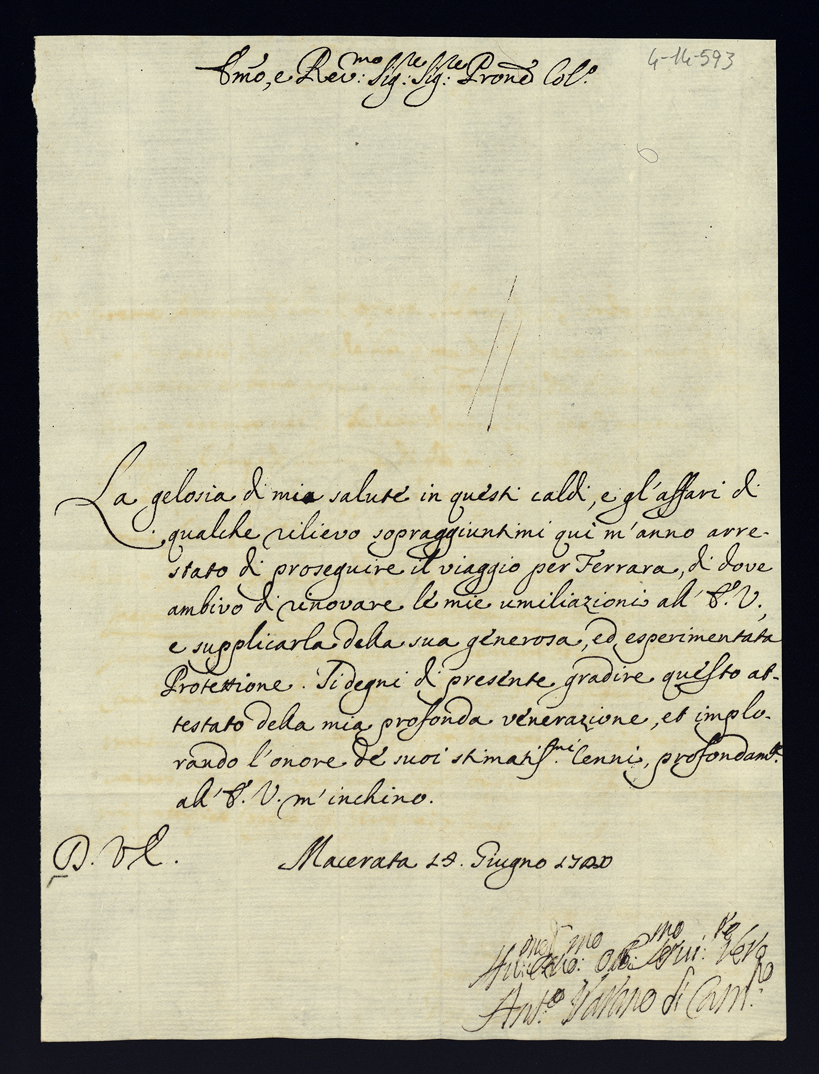 4-14-593
Em̃o, e Rev:mo Sig:re Sig:re Prone Col.o
6
La gelosia di mia salute in questi caldi, e gl'affari di
qualche rilievo sopraggiuntimi qui m'anno arre-
stato di proseguire il viaggio per Ferrara, di dove
ambivo di rinovare le mie umiliazioni all' E.V.,
e supplicarla della sua generosa, ed esperimentata
Protettione. Si degni di presente gradire questo at-
testato della mia profonda venerazione, et implo-
rando l'onore de suoi stimatiss.mi Cenni, profondam.te
all' E.V. m'inchino.
D. V E.
Macerata Giugno
Ant.o Varano di Cam.no